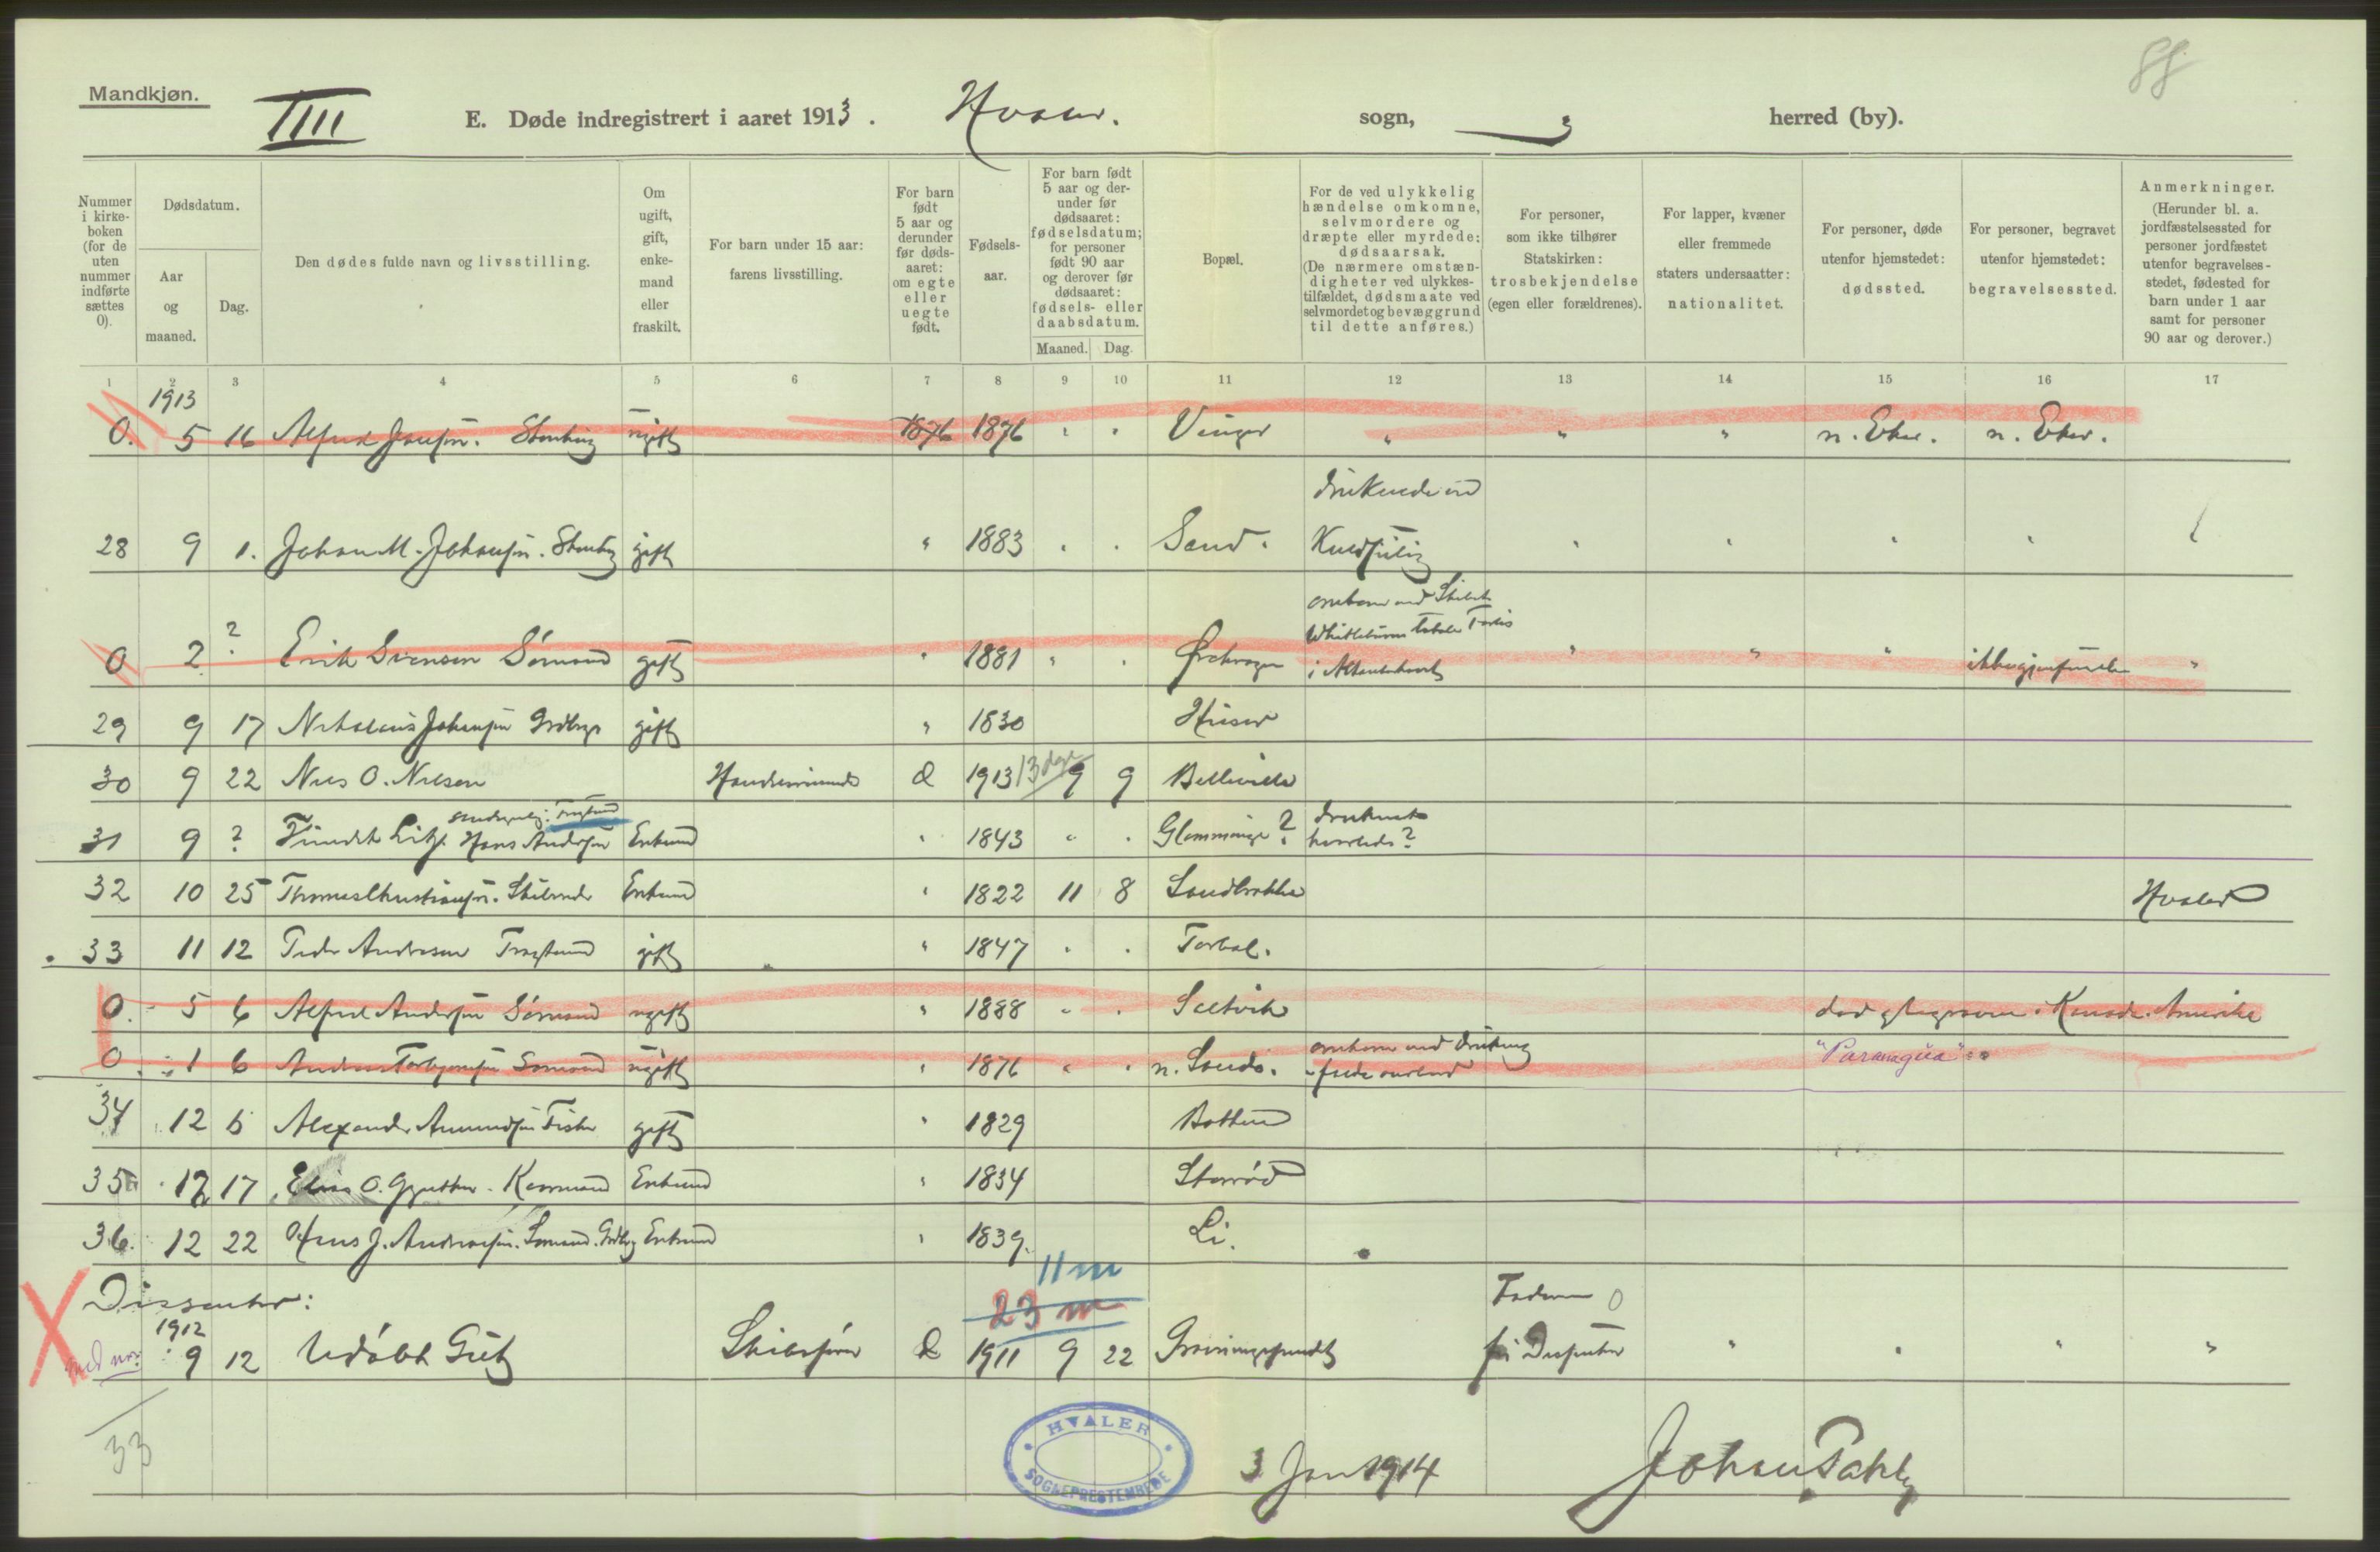 88
Mandkjøn.
IIII
E. Døde indregistrert i aaret 1913. Hvaler. sogn, herred (by).
Nummer i kirke- boken (for de uten nummer indførte sættes 0).
Dødsdatum.
Aar og maaned.
Dag.
Den dødes fulde navn og livsstilling.
Om ugift, gift, enke- mand eller fraskilt.
For barn under 15 aar: farens livsstilling.
For barn født 5 aar og derunder før døds- aaret: om egte eller uegte født.
Fødsels- aar.
For barn født 5 aar og der- under før dødsaaret: fødselsdatum; for personer født 90 aar og derover før dødsaaret: fødsels- eller daabsdatum.
Maaned. Dag.
Bopæl.
For de ved ulykkelig hændelse omkomne, selvmordere og dræpte eller myrdede: dødsaarsak. (De nærmere omstæn- digheter ved ulykkes- tilfældet, dødsmaate ved selvmordet og bevæggrund til dette anføres.)
For personer, som ikke tilhører Statskirken: trosbekjendelse (egen eller forældrenes).
For lapper, kvæner eller fremmede staters undersaatter: nationalitet.
For personer, døde utenfor hjemstedet: dødssted.
For personer, begravet utenfor hjemstedet: begravelsessted.
Anmerkninger. (Herunder bl. a. jordfæstelsessted for personer jordfæstet utenfor begravelses- stedet, fødested for barn under 1 aar samt for personer 90 aar og derover.)
1 2 3 4 5 6 7 8 9 10 11 12 13 14 15 16 17
1913
0. 5 16 Alfred Jonsen. Stenhug ugift 1876 1876 " " Vinger " " " n. Eker. n. Eker.
druknede ved
28 9 1. Johan M. Johansen. Stenhug gift " 1883 " " Sand.
omkom med Skibet
Whistleburn totale Forlis
0 2 ? Erik Svensen Sømand gift " 1881 " " i Atlanterhavet " " " ikke gjenfunden "
29 9 17 Nikolaus Johansen Grdbrgr gift " 1830 Huser
30 9 22 Nils O. Nilsen Handelsmand 1913 13 dage 9 9 Belleville
31 9 ? Hans Andersen Enkemd " 1843 " " Glommings ? druknet
hvorledes?
32 10 25 Thomas Christiansen. Enkemd " 1822 11 8 Sandbrække Hvaler
33 11 12 Peder Andresen gift " 1847 " " Torbal.
0. 5 6 Alfred Andersen Sømand ugift " 1888 " " død Kanada. Amerika
0 1 6 Andreas Torbjørnsen Sømand ugift " 1876 " " n. Sandø. omkom ved drukning "Paranagua"
34 12 5 Alexander Amundsen Fisker gift " 1829 Botten
35 12 17 Elias O. Enkemd " 1834 Storrød
36. 12 22 Hans J. Andreasen. Sømand. Grdbrg Enkemd " 1839. Li.
11 m
23 m
Dissenter:
1912
9 12 Udøbt Gut Skibsfører 1911 9 22 Faderen
fri Dissenter " " " "
33
HVALER
SOGNEPRESTEMBEDE
3 Jan 1914